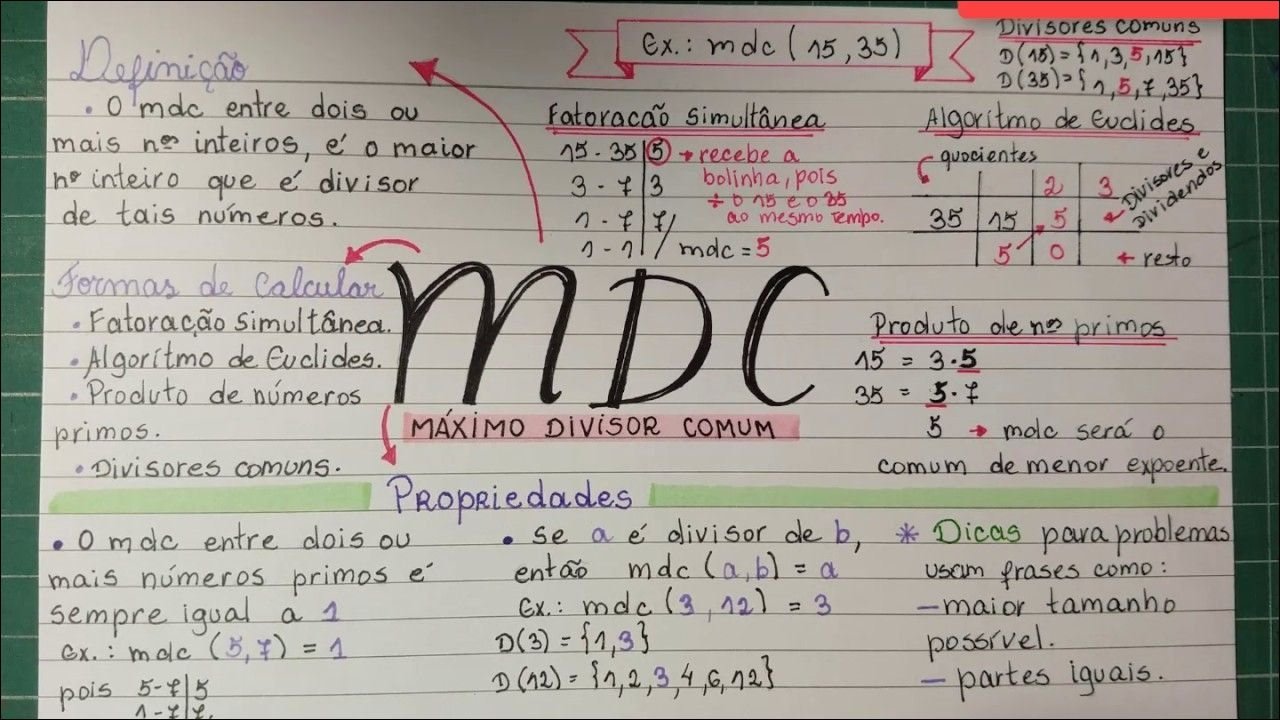 Definição
• O mdc entre dois ou
mais nºs inteiros, é o maior
nº inteiro que é divisor
de tais números.
Formas de Calcular
• Fatoração simultânea.
• Algorítmo de Euclides.
• Produto de números
primos.
• Divisores comuns.
Ex.: mdc (15,35)
Divisores comuns
D(15)={1,3,5,15}
D(35)={1,5,7,35}
Fatoracão simultânea
15 - 35|5 → recebe a
bolinha, pois
3 - 7|3
÷ o 15 e o 35
ao mesmo tempo.
1 - 7|7
1 - 1
mdc = 5
Algorítmo de Euclides
quocientes
2 3
35 15 5
5 0
Divisores e
Dividendos
← resto
MDC
MÁXIMO DIVISOR COMUM
Produto de nºs primos
15 = 3·5
35 = 5·7
5 → mdc será o
comum de menor expoente.
Propriedades
• O mdc entre dois ou
mais números primos é
sempre igual a 1
Ex.: mdc (5,7) = 1
pois 5-7|5
1-7|7
• se a é divisor de b,
então mdc (a,b) = a
Ex.: mdc (3,12) = 3
D(3)={1,3}
D(12)={1,2,3,4,6,12}
* Dicas para problemas
usam frases como:
— maior tamanho
possível.
— partes iguais.